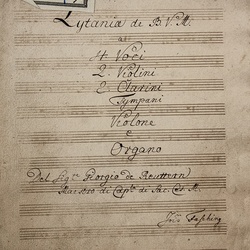 Lytaniæ de B. V. M.
a
4 Voci
2 Violini
2 Clarini
Tympani
Violone
e
Organo
Del Sig.re Giorgio de Reuttern
Maestro di Cap. de Sac. Ces. M.